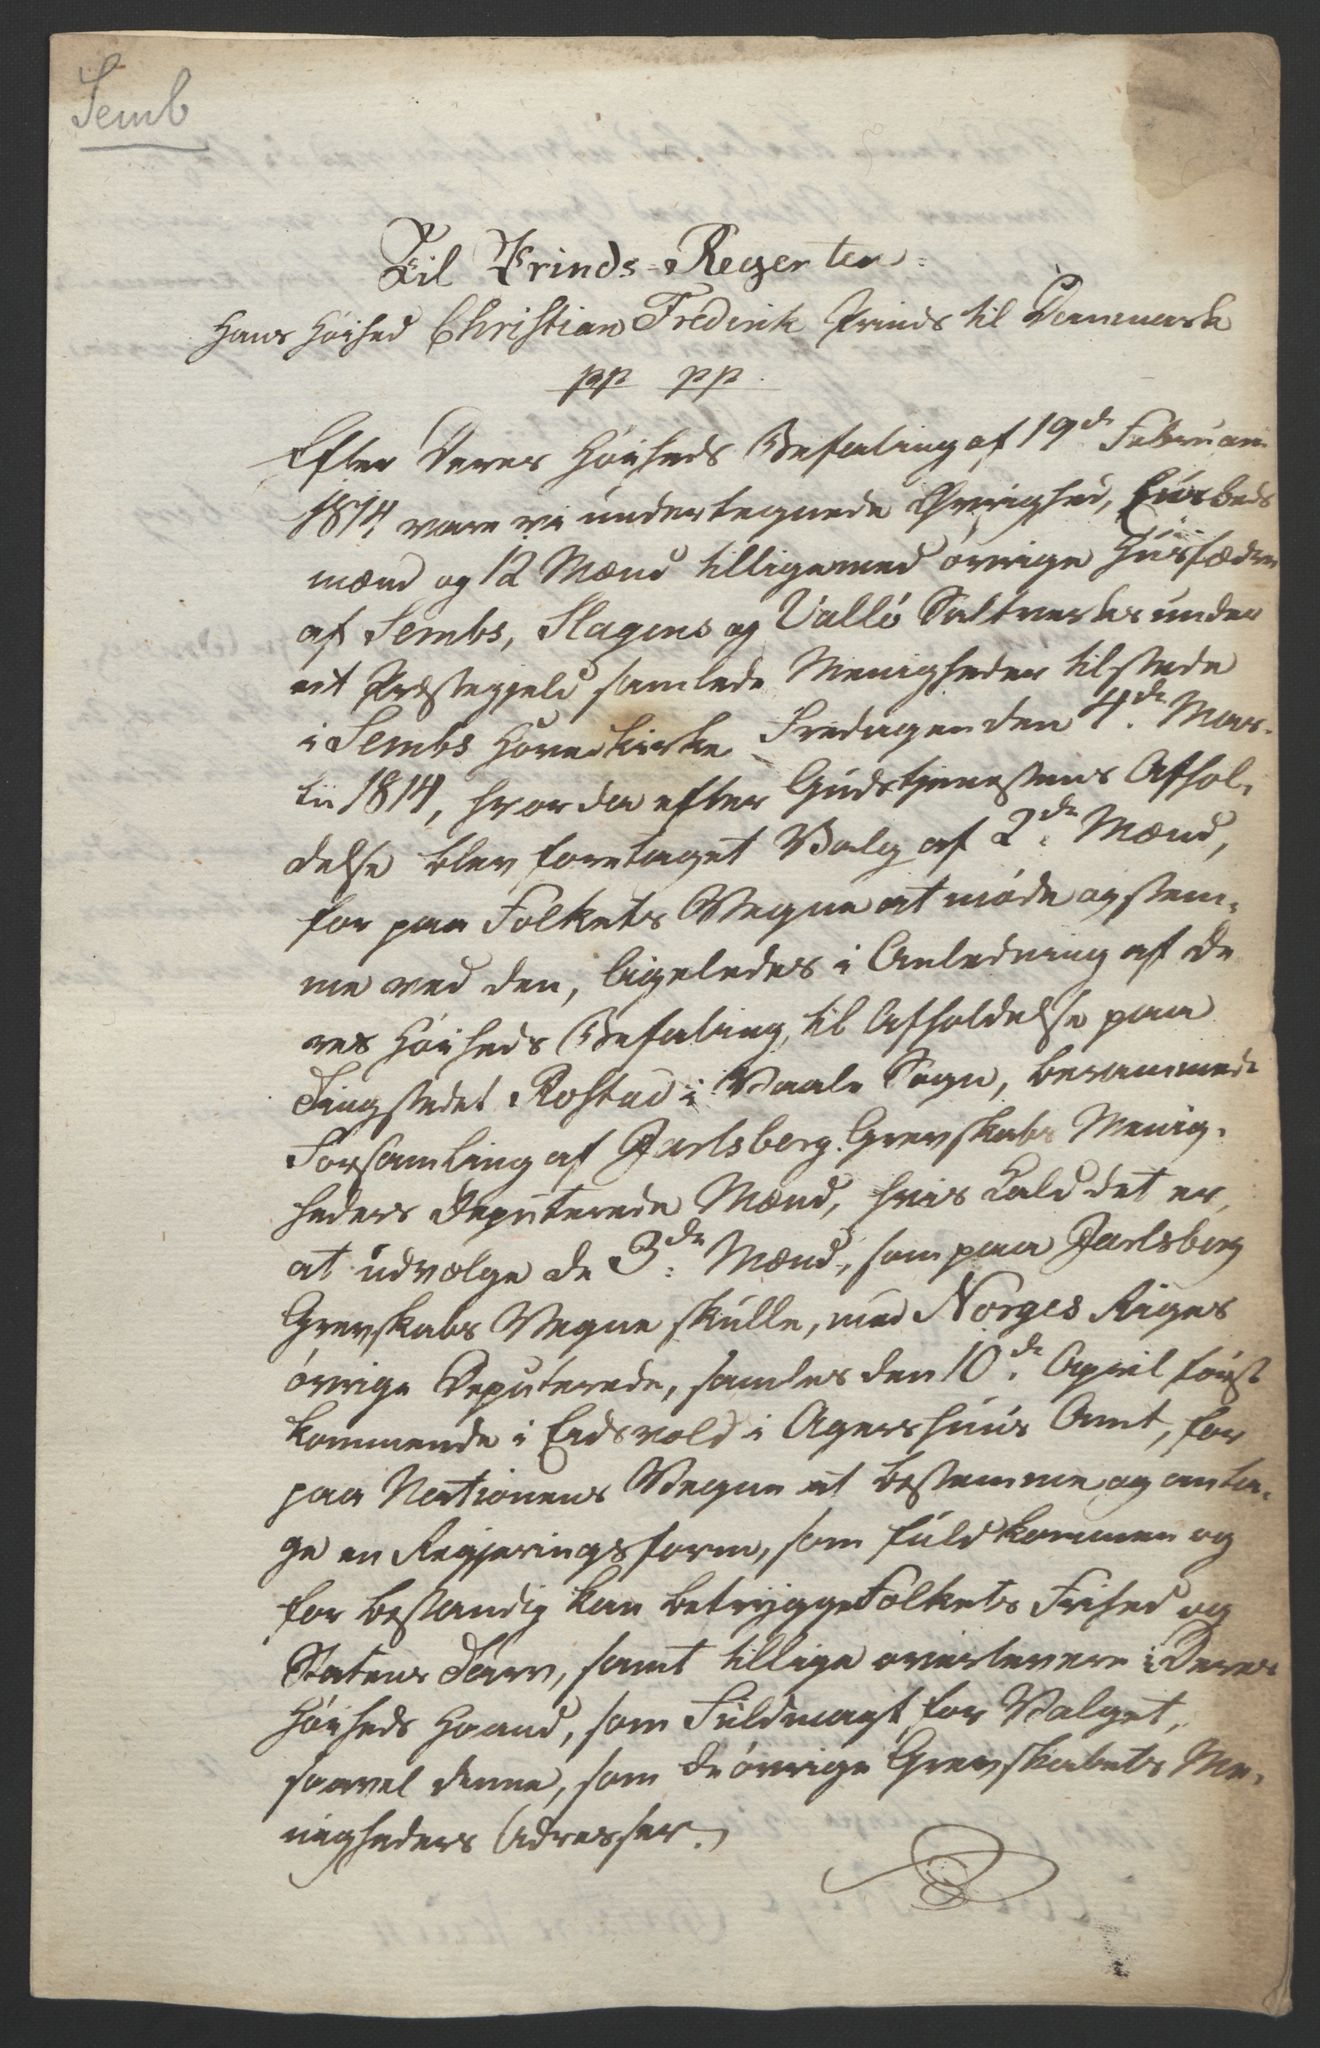 Semb
Til Prinds-Regenten.
Hans Höihed Christian Frederik Prinds til Danmark
pp pp.
Efter Deres Höiheds Befaling af 19de Februari
1814 vare vi undertegnede Øvrighed, Eiisbeds
mænd og 12 Mænd tilligemed övrige Huusfædre
af Sembs, Slagens og Vallö Saltverks under
eet Præstegjeld samlede Menigheder tilstede
i Sembs Hovedkirke Fredagen den 4de Mar-
tii 1814, hvor da efter Gudstjenestens Afhol-
delse blev foretaget Valg af 2de Mænd,
for paa Folkets Vegne at möde og stem-
me ved den, ligeledes i Anledning af De
res Höiheds Befaling, til Afholdelse paa
Tingstedet Rostad i Vaale Sogn, berammede
Forsamling af Jarlsberg Grevskabs Menig-
heders Deputerede Mænd, hvis Kald det er,
at udvælge de 3de Mænd, som paa Jarlsberg
Grevskabs Vegne skulle, med Norges Riges
övrige Deputerede, samles den 10de April först
kommende i Eidsvold i Agershuus Amt, for
paa Nationens Vegne at bestemme og anta-
ge en Regjeringsform, som fuldkommen og
for bestandig kan betrygge Folkets Frihed og
Statens Tarv, samt tillige overlevere i Deres
Höiheds Haand, som Fuldmagt for Valget,
saavel denne, som de övrige Grevskabets Me-
nigheders Adresser.